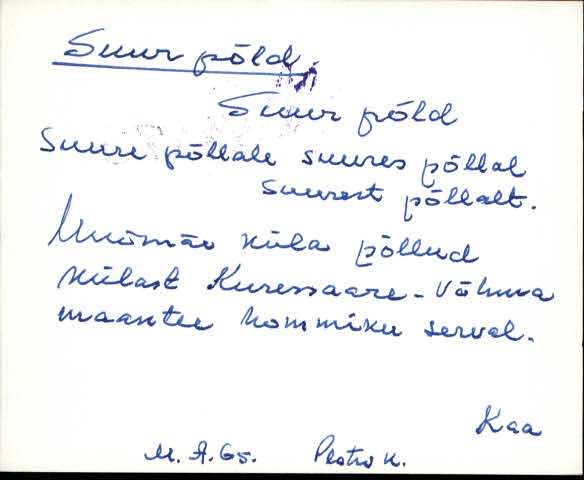 Suur põld
Suur põld
Suure põllale suures põllal
suurest põllalt.
küla põllud
külast Kuressaare - Võhma
maantee hommiku serval.
Kaa
M. A. 65. K.